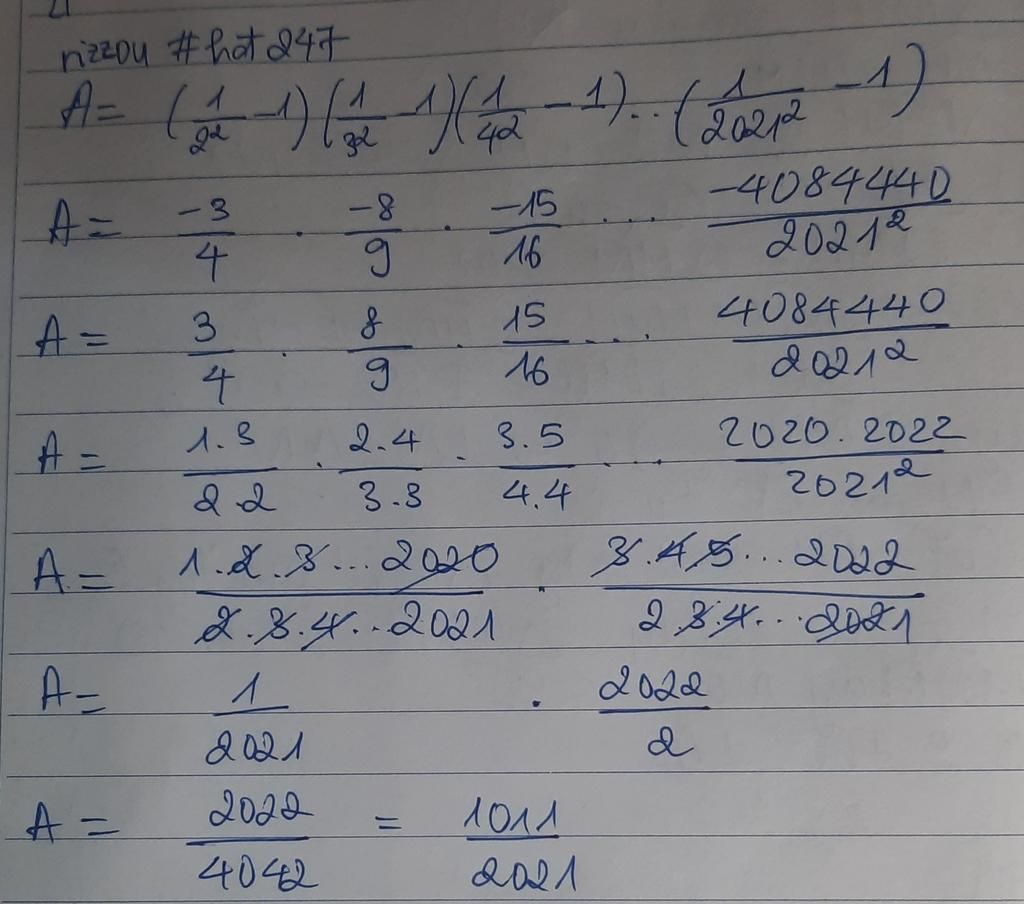 rizzou #hot247
A = (1/2² - 1)(1/3² - 1)(1/4² - 1)...(1/2021² - 1)
A = -3/4 . -8/9 . -15/16 ... -4084440/2021²
A = 3/4 . 8/9 . 15/16 ... 4084440/2021²
A = 1.3/2.2 . 2.4/3.3 . 3.5/4.4 ... 2020.2022/2021²
A = 1.2.3...2020/2.3.4...2021 . 3.4.5...2022/2.3.4...2021
A = 1/2021 . 2022/2
A = 2022/4042 = 1011/2021